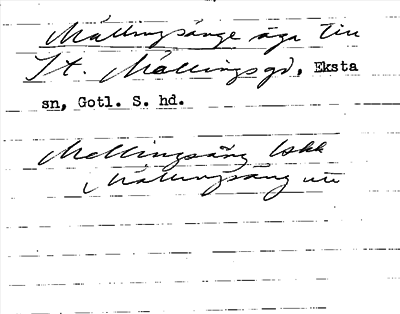 Mällingsänge äga till
St. Mällingsgd, Eksta
sn, Gotl. S. hd.
Mellingsäng lskk
Mällingsäng utt